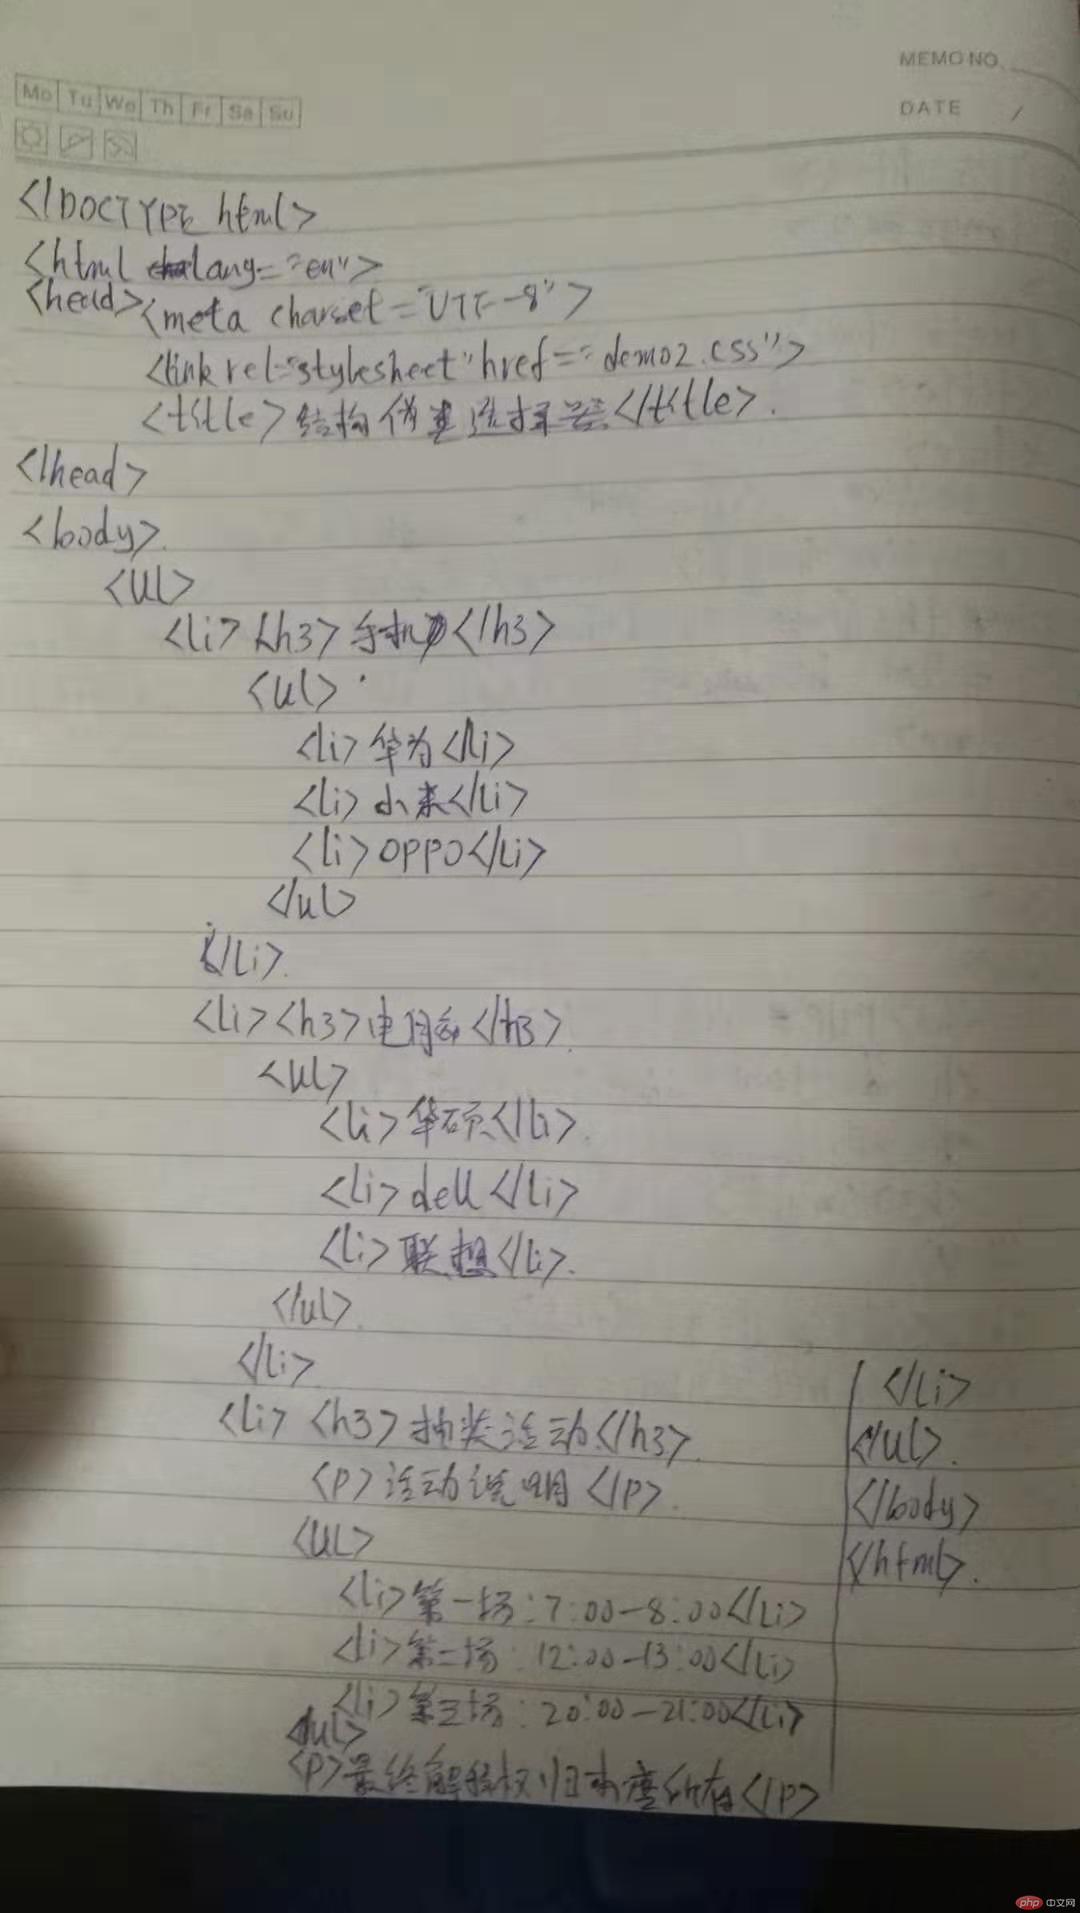 MEMO NO.
Mo Tu We Th Fr Sa Su
DATE /
<!DOCTYPE html>
<html lang="en">
<head><meta charset="UTF-8">
<link rel="stylesheet" href="demo2.css">
<title>结构伪类选择器</title>
</head>
<body>
<ul>
<li><h3>手机</h3>
<ul>
<li>华为</li>
<li>小米</li>
<li>OPPO</li>
</ul>
</li>
<li><h3>电脑</h3>
<ul>
<li>华硕</li>
<li>dell</li>
<li>联想</li>
</ul>
</li>
<li><h3>抽奖活动</h3>
<p>活动说明</p>
<ul>
<li>第一场:7:00-8:00</li>
<li>第二场:12:00-13:00</li>
<li>第三场:20:00-21:00</li>
</ul>
<p>最终解释权归本店所有</p>
</li>
</ul>
</body>
</html>
php 中文网